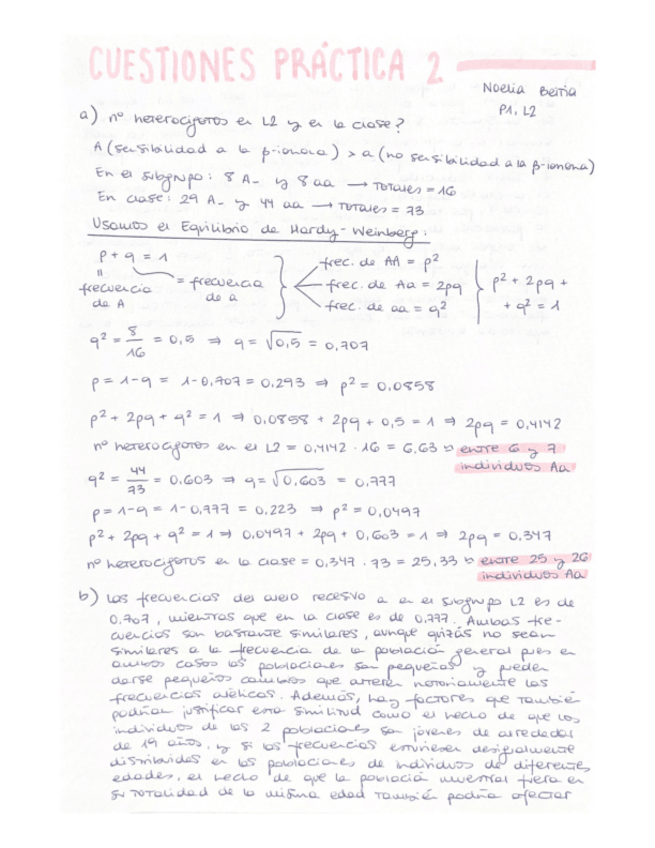 CUESTIONES PRÁCTICA 2
Noelia Beitia
P1, L2
a) nº heterocigotos en L2 y en la clase?
A (sensibilidad a la β-ionona) > a (no sensibilidad a la β-ionona)
En el subgrupo: 8 A_ y 8 aa → Totales = 16
En clase: 29 A_ y 44 aa → Totales = 73
Usamos el Equilibrio de Hardy-Weinberg:
p + q = 1
frecuencia de A
= frecuencia de a
frec. de AA = p²
frec. de Aa = 2pq
frec. de aa = q²
p² + 2pq +
+ q² = 1
q² = 8/16 = 0,5 ⇒ q = √0,5 = 0,707
p = 1-q = 1-0,707 = 0,293 ⇒ p² = 0,0858
p² + 2pq + q² = 1 ⇒ 0,0858 + 2pq + 0,5 = 1 ⇒ 2pq = 0,4142
nº heterocigotos en el L2 = 0,4142 · 16 = 6,63 entre 6 y 7
individuos Aa
q² = 44/73 = 0,603 ⇒ q = √0,603 = 0,777
p = 1-q = 1-0,777 = 0,223 ⇒ p² = 0,0497
p² + 2pq + q² = 1 ⇒ 0,0497 + 2pq + 0,603 = 1 ⇒ 2pq = 0,347
nº heterocigotos en la clase = 0,347 · 73 = 25,33 entre 25 y 26
individuos Aa
b) Las frecuencias del alelo recesivo a en el subgrupo L2 es de
0,707, mientras que en la clase es de 0,777. Ambas fre-
cuencias son bastante similares, aunque quizás no sean
similares a la frecuencia de la población general pues en
ambos casos las poblaciones son pequeñas y pueden
darse pequeños cambios que alteren notoriamente las
frecuencias alélicas. Además, hay factores que también
podrían justificar esta similitud como el hecho de que los
individuos de las 2 poblaciones son jóvenes de alrededor
de 19 años, y si las frecuencias estuviesen desigualmente
distribuidas en las poblaciones de individuos de diferentes
edades, el hecho de que la población muestral fuera en
su totalidad de la misma edad también podría afectar